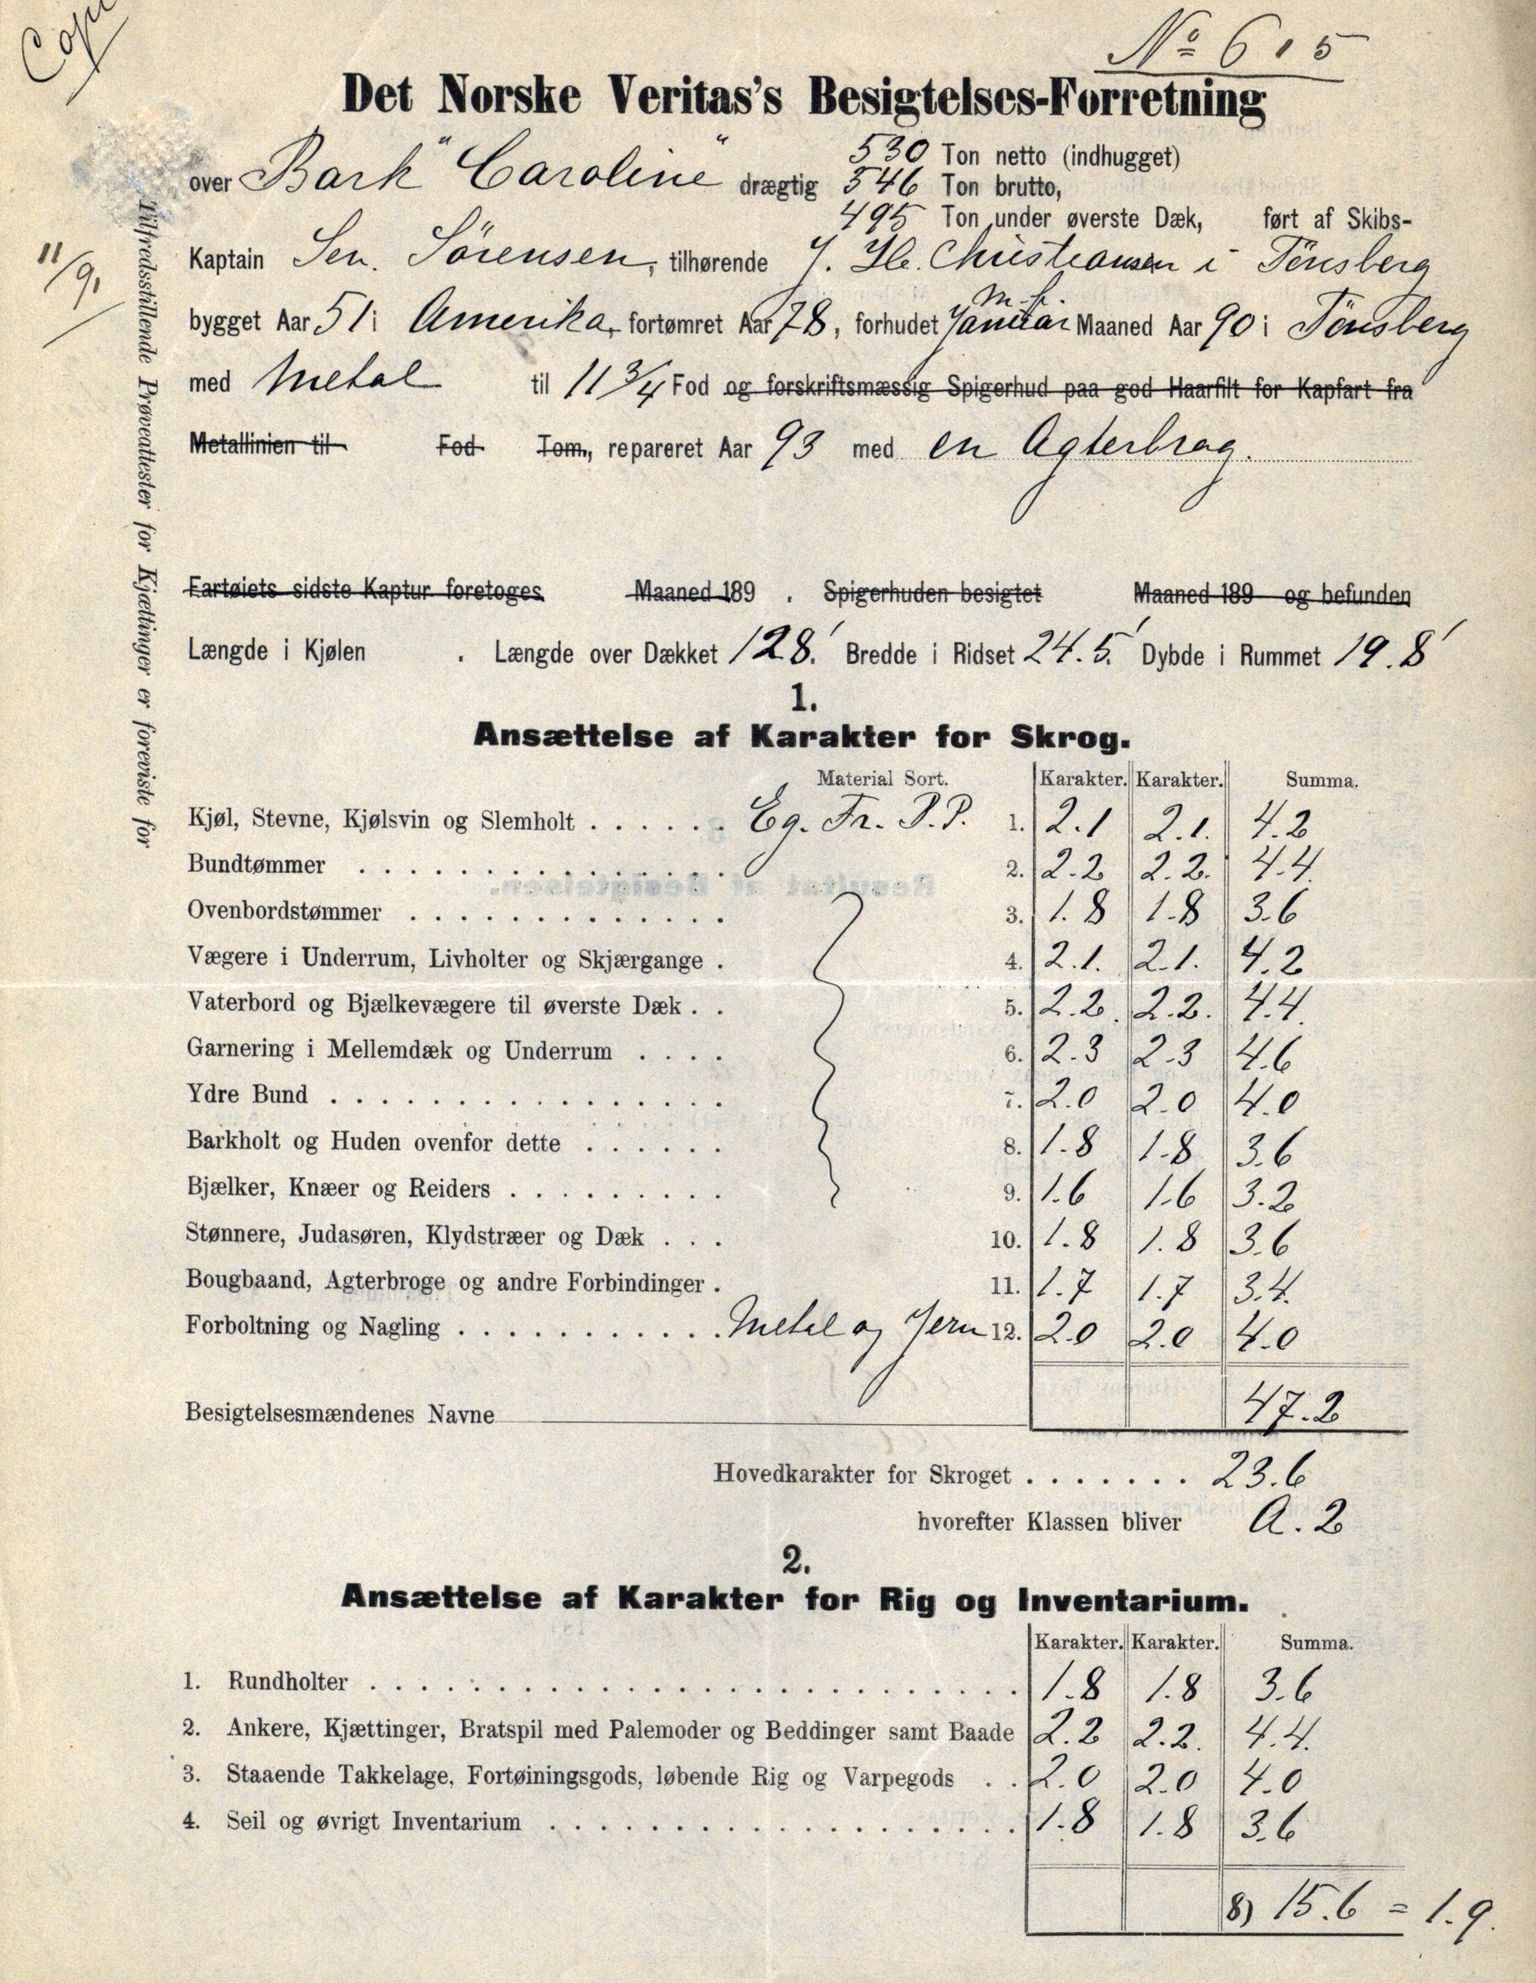 Copi
No 615
Det Norske Veritas's Besigtelses-Forretning
over Bark "Caroline" drægtig 530 Ton netto (indhugget)
546 Ton brutto,
495 Ton under øverste Dæk, ført af Skibs-
Kaptain Sev. Sörensen, tilhørende J. Chr. Christiansen i Tönsberg
bygget Aar 51 i Amerika, fortømret Aar 78, forhudet Januar Maaned Aar 90 i Tönsberg
med Metal til 11 3/4 Fod og forskriftsmæssig Spigerhud paa god Haarfilt for Kapfart fra
Metallinien til Fod Tom., repareret Aar 93 med en Agterbrog.
Fartøiets sidste Kaptur foretoges Maaned 189 . Spigerhuden besigtet Maaned 189 og befunden
Længde i Kjølen . Længde over Dækket 128.' Bredde i Ridset 24.5.' Dybde i Rummet 19.8'
11/9.
Tilfredsstillende Prøveattester for Kjættinger er foreviste for
1.
Ansættelse af Karakter for Skrog.
Material Sort. Karakter. Karakter. Summa.
Kjøl, Stevne, Kjølsvin og Slemholt . . . . . . Eg. Fr. P.P. 1. 2.1 2.1. 4.2
Bundtømmer . . . . . . . . . . . . . . . . 2. 2.2 2.2. 4.4.
Ovenbordstømmer . . . . . . . . . . . . . . 3. 1.8 1.8 3.6
Vægere i Underrum, Livholter og Skjærgange . 4. 2.1. 2.1. 4.2
Vaterbord og Bjælkevægere til øverste Dæk . . 5. 2.2. 2.2. 4.4.
Garnering i Mellemdæk og Underrum . . . . 6. 2.3 2.3 4.6
Ydre Bund . . . . . . . . . . . . . . . . . 7. 2.0 2.0 4.0
Barkholt og Huden ovenfor dette . . . . . . 8. 1.8 1.8 3.6
Bjælker, Knæer og Reiders . . . . . . . . . 9. 1.6 1.6 3.2
Stønnere, Judasøren, Klydstræer og Dæk . . . 10. 1.8 1.8 3.6
Bougbaand, Agterbroge og andre Forbindinger . 11. 1.7 1.7 3.4.
Forboltning og Nagling . . . . . . . . . . . Metal og Jern 12. 2.0 2.0 4.0
Besigtelsesmændenes Navne 47.2
Hovedkarakter for Skroget . . . . . . . 23.6
hvorefter Klassen bliver A. 2
2.
Ansættelse af Karakter for Rig og Inventarium.
Karakter. Karakter. Summa.
1. Rundholter . . . . . . . . . . . . . . . . . . . . . . . . . . . . 1.8 1.8 3.6
2. Ankere, Kjættinger, Bratspil med Palemoder og Beddinger samt Baade 2.2 2.2. 4.4.
3. Staaende Takkelage, Fortøiningsgods, løbende Rig og Varpegods . . 2.0 2.0 4.0
4. Seil og øvrigt Inventarium . . . . . . . . . . . . . . . . . . . . 1.8 1.8 3.6
8) 15.6 = 1.9.